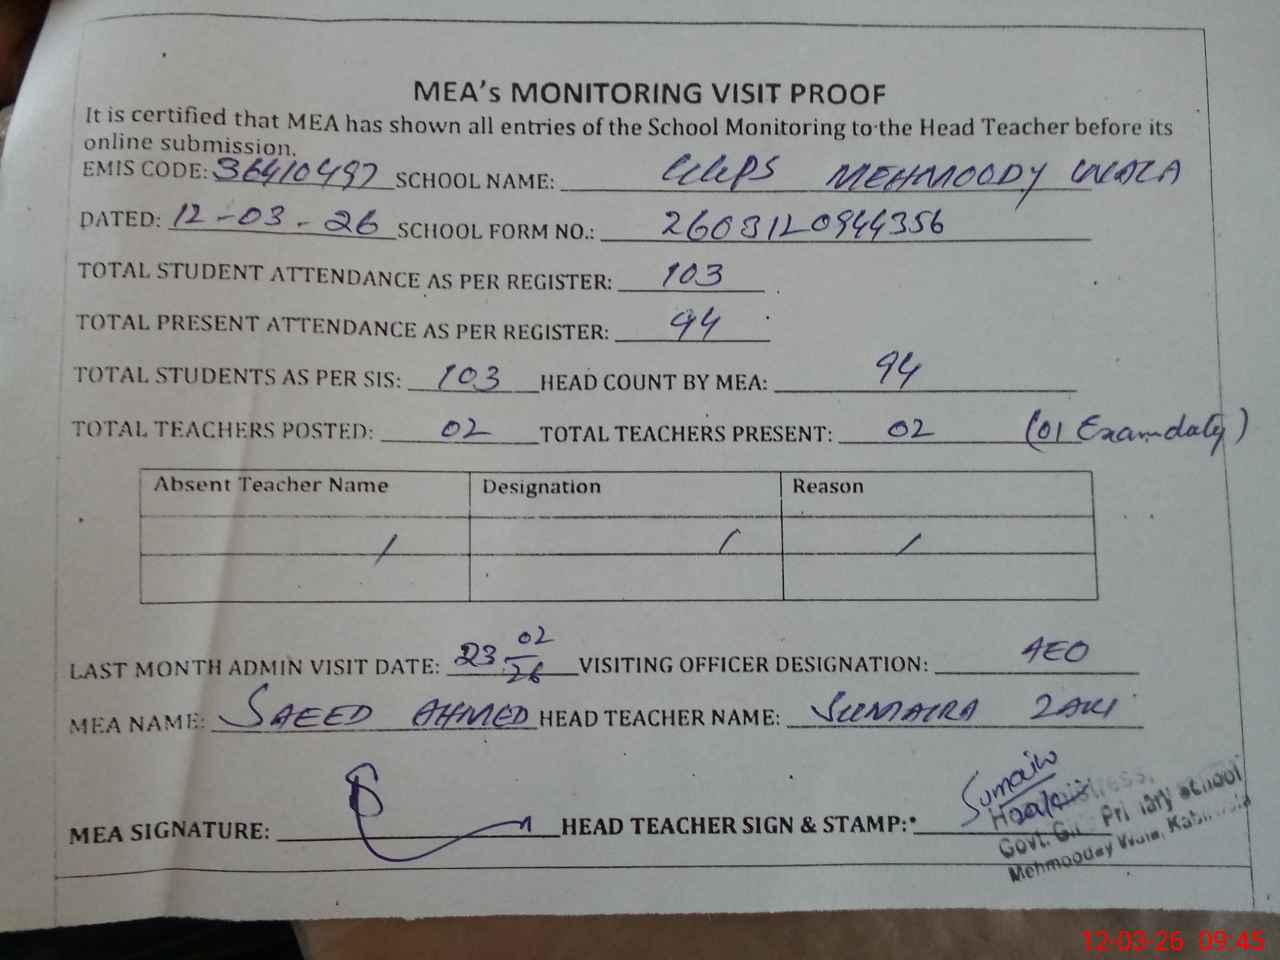 MEA's MONITORING VISIT PROOF
It is certified that MEA has shown all entries of the School Monitoring to the Head Teacher before its
online submission.
EMIS CODE: 36410497 SCHOOL NAME: GGPS MEHMOODY WALA
DATED: 12-03-26 SCHOOL FORM NO.: 2603120944356
TOTAL STUDENT ATTENDANCE AS PER REGISTER: 103
TOTAL PRESENT ATTENDANCE AS PER REGISTER: 94
TOTAL STUDENTS AS PER SIS: 103 HEAD COUNT BY MEA: 94
TOTAL TEACHERS POSTED: 02 TOTAL TEACHERS PRESENT: 02 (01 Exam duty)
Absent Teacher Name Designation Reason
/ / /
LAST MONTH ADMIN VISIT DATE: 23 02/26 VISITING OFFICER DESIGNATION: AEO
MEA NAME: SAEED AHMED HEAD TEACHER NAME: SUMAIRA ZAKI
MEA SIGNATURE: HEAD TEACHER SIGN & STAMP:
Govt. School
Mehmooday Wala,
12-03-26 09:45